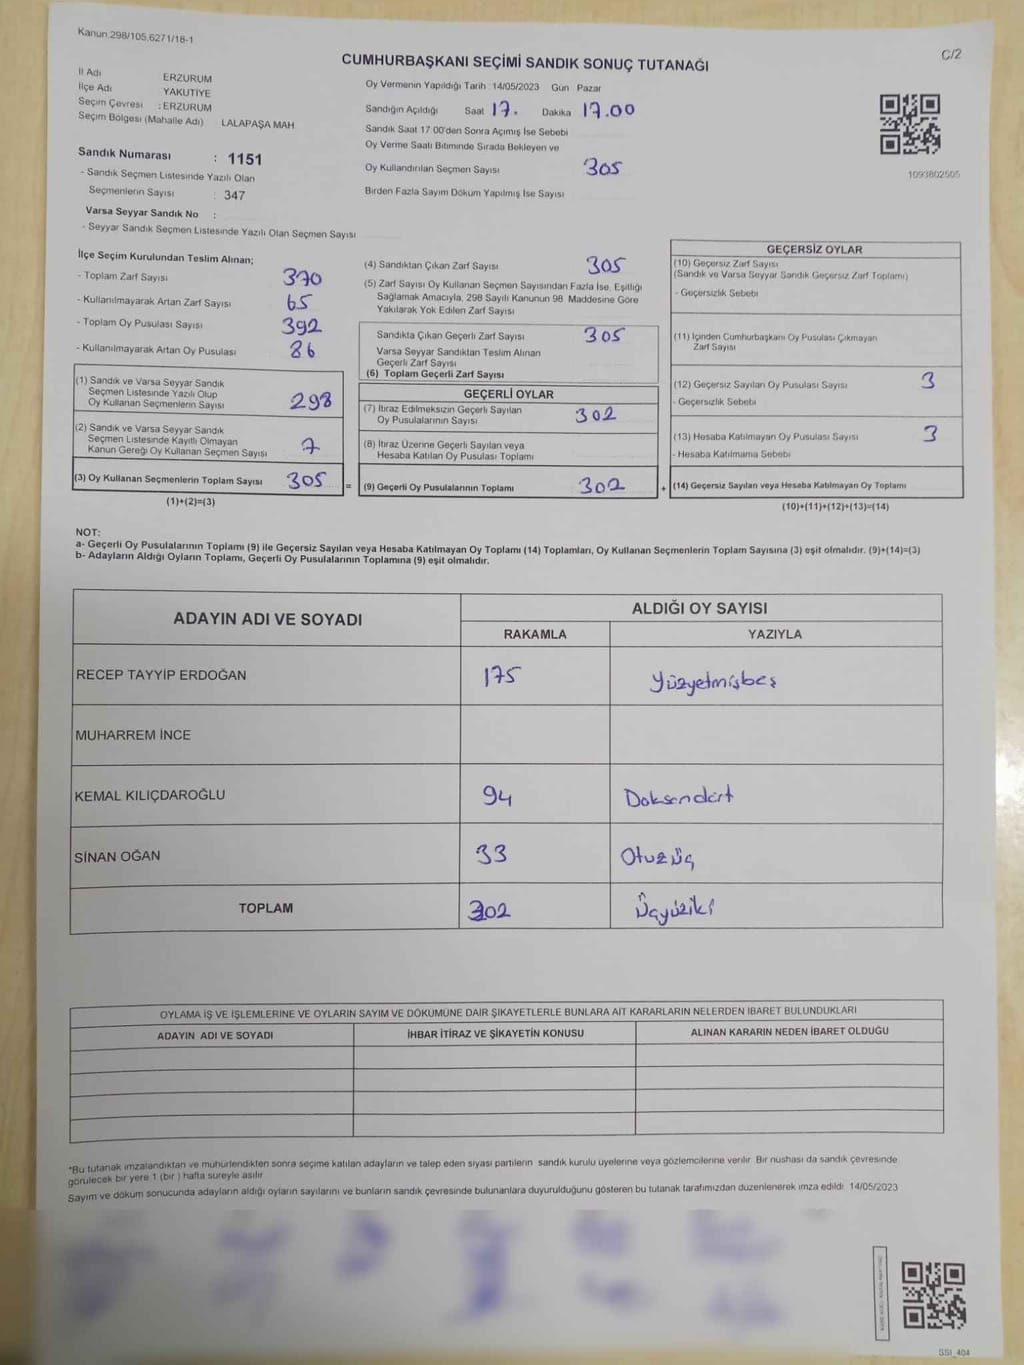 Kanun.298/105,6271/18-1
C/2
CUMHURBAŞKANI SEÇİMİ SANDIK SONUÇ TUTANAĞI
İl Adı ERZURUM
İlçe Adı YAKUTİYE
Seçim Çevresi : ERZURUM
Seçim Bölgesi (Mahalle Adı) LALAPAŞA MAH
Sandık Numarası : 1151
- Sandık Seçmen Listesinde Yazılı Olan
Seçmenlerin Sayısı : 347
Varsa Seyyar Sandık No :
- Seyyar Sandık Seçmen Listesinde Yazılı Olan Seçmen Sayısı
Oy Vermenin Yapıldığı Tarih : 14/05/2023 Gün Pazar
Sandığın Açıldığı Saat 17. Dakika 17.00
Sandık Saat 17:00'den Sonra Açımış İse Sebebi
Oy Verme Saati Bitiminde Sırada Bekleyen ve
Oy Kullandırılan Seçmen Sayısı 305
Birden Fazla Sayım Döküm Yapılmış İse Sayısı
1093802505
İlçe Seçim Kurulundan Teslim Alınan;
- Toplam Zarf Sayısı 370
- Kullanılmayarak Artan Zarf Sayısı 65
- Toplam Oy Pusulası Sayısı 392
- Kullanılmayarak Artan Oy Pusulası 86
(1) Sandık ve Varsa Seyyar Sandık
Seçmen Listesinde Yazılı Olup
Oy Kullanan Seçmenlerin Sayısı 298
(2) Sandık ve Varsa Seyyar Sandık
Seçmen Listesinde Kayıtlı Olmayan
Kanun Gereği Oy Kullanan Seçmen Sayısı 7
(3) Oy Kullanan Seçmenlerin Toplam Sayısı 305
(1)+(2)=(3)
(4) Sandıktan Çıkan Zarf Sayısı 305
(5) Zarf Sayısı Oy Kullanan Seçmen Sayısından Fazla İse, Eşitliği
Sağlamak Amacıyla, 298 Sayılı Kanunun 98 Maddesine Göre
Yakılarak Yok Edilen Zarf Sayısı
Sandıkta Çıkan Geçerli Zarf Sayısı 305
Varsa Seyyar Sandıktan Teslim Alınan
Geçerli Zarf Sayısı
(6) Toplam Geçerli Zarf Sayısı
GEÇERLİ OYLAR
(7) İtiraz Edilmeksizin Geçerli Sayılan
Oy Pusulalarının Sayısı 302
(8) İtiraz Üzerine Geçerli Sayılan veya
Hesaba Katılan Oy Pusulası Toplamı
= (9) Geçerli Oy Pusulalarının Toplamı 302
GEÇERSİZ OYLAR
(10) Geçersiz Zarf Sayısı
(Sandık ve Varsa Seyyar Sandık Geçersiz Zarf Toplamı)
- Geçersizlik Sebebi
(11) İçinden Cumhurbaşkanı Oy Pusulası Çıkmayan
Zarf Sayısı
(12) Geçersiz Sayılan Oy Pusulası Sayısı 3
- Geçersizlik Sebebi
(13) Hesaba Katılmayan Oy Pusulası Sayısı 3
- Hesaba Katılmama Sebebi
+ (14) Geçersiz Sayılan veya Hesaba Katılmayan Oy Toplamı
(10)+(11)+(12)+(13)=(14)
NOT:
a- Geçerli Oy Pusulalarının Toplamı (9) ile Geçersiz Sayılan veya Hesaba Katılmayan Oy Toplamı (14) Toplamları, Oy Kullanan Seçmenlerin Toplam Sayısına (3) eşit olmalıdır. (9)+(14)=(3)
b- Adayların Aldığı Oyların Toplamı, Geçerli Oy Pusulalarının Toplamına (9) eşit olmalıdır.
ADAYIN ADI VE SOYADI ALDIĞI OY SAYISI
RAKAMLA YAZIYLA
RECEP TAYYİP ERDOĞAN 175 Yüzyetmişbeş
MUHARREM İNCE
KEMAL KILIÇDAROĞLU 94 Doksandört
SİNAN OĞAN 33 Otuzüç
TOPLAM 302 Üçyüziki
OYLAMA İŞ VE İŞLEMLERİNE VE OYLARIN SAYIM VE DÖKÜMÜNE DAİR ŞİKAYETLERLE BUNLARA AİT KARARLARIN NELERDEN İBARET BULUNDUKLARI
ADAYIN ADI VE SOYADI İHBAR İTİRAZ VE ŞİKAYETİN KONUSU ALINAN KARARIN NEDEN İBARET OLDUĞU
*Bu tutanak imzalandıktan ve mühürlendikten sonra seçime katılan adayların ve talep eden siyasi partilerin sandık kurulu üyelerine veya gözlemcilerine verilir. Bir nüshası da sandık çevresinde
görülecek bir yere 1 (bir ) hafta süreyle asılır.
Sayım ve döküm sonucunda adayların aldığı oyların sayılarını ve bunların sandık çevresinde bulunanlara duyurulduğunu gösteren bu tutanak tarafımızdan düzenlenerek imza edildi. 14/05/2023
SSI_404